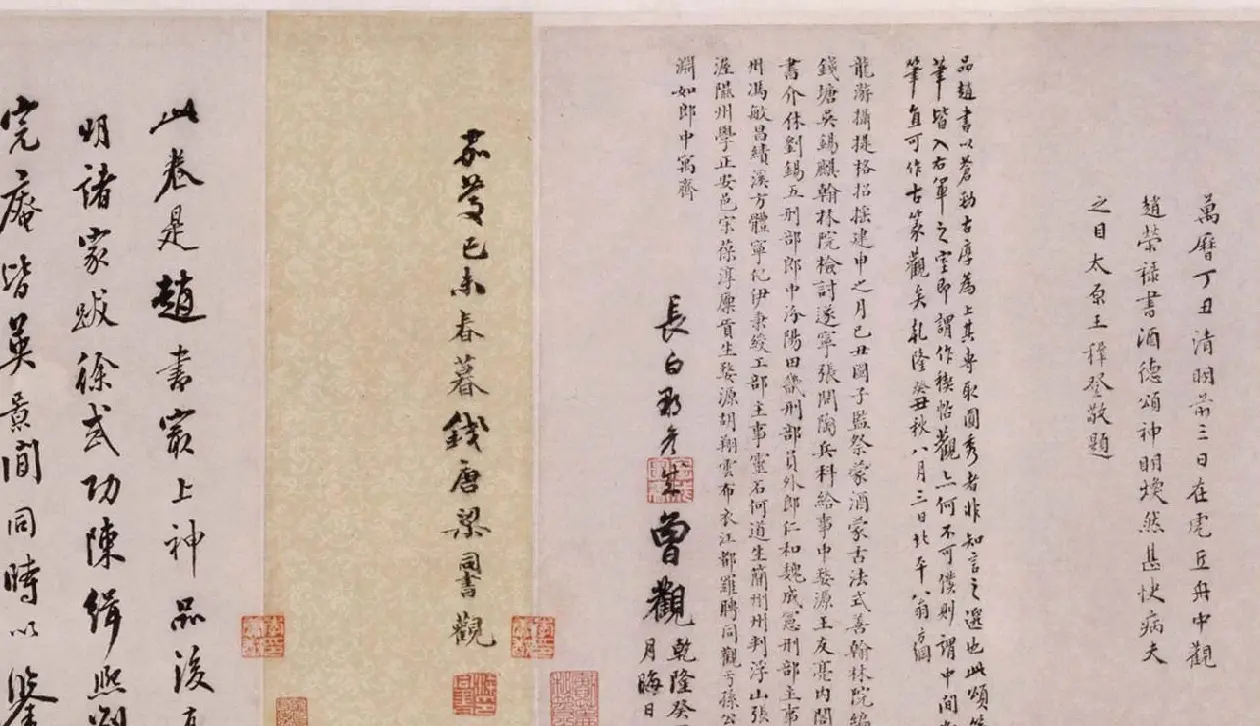 萬曆丁丑清明前三日在虎丘舟中觀
趙榮祿書酒德頌神明煥然甚快病夫
之目太原王穉登敬題
品趙書以蒼勁古厚為上其專取圓秀者非知言之選也此頌
筆皆入右軍之室即謂作稧帖觀亦何不可僕則謂中間
筆直可作古篆觀矣乾隆癸丑秋八月三日北平翁方綱
龍游攝提格招搖建申之月己丑國子監祭酒蒙古法式善翰林院編
錢塘吳錫麒翰林院檢討遂寧張問陶兵科給事中婺源王友亮內閣
書介休劉錫五刑部郎中汾陽田畿刑部員外郎仁和魏成憲刑部主事
州馮敏昌績溪方體寧化伊秉綬工部主事靈石何道生蘭州州判浮山張
渥隰州學正安邑宋葆淳廩貢生婺源胡翔雲布衣江都羅聘同觀于孫公
淵如郎中寓齋
長白
曾觀
乾隆癸
月晦日
嘉慶己未春暮錢唐梁同書觀
此卷是趙書最上神品後有
明諸家跋徐武功陳緝熙劉
完庵皆英景間同時以鑒